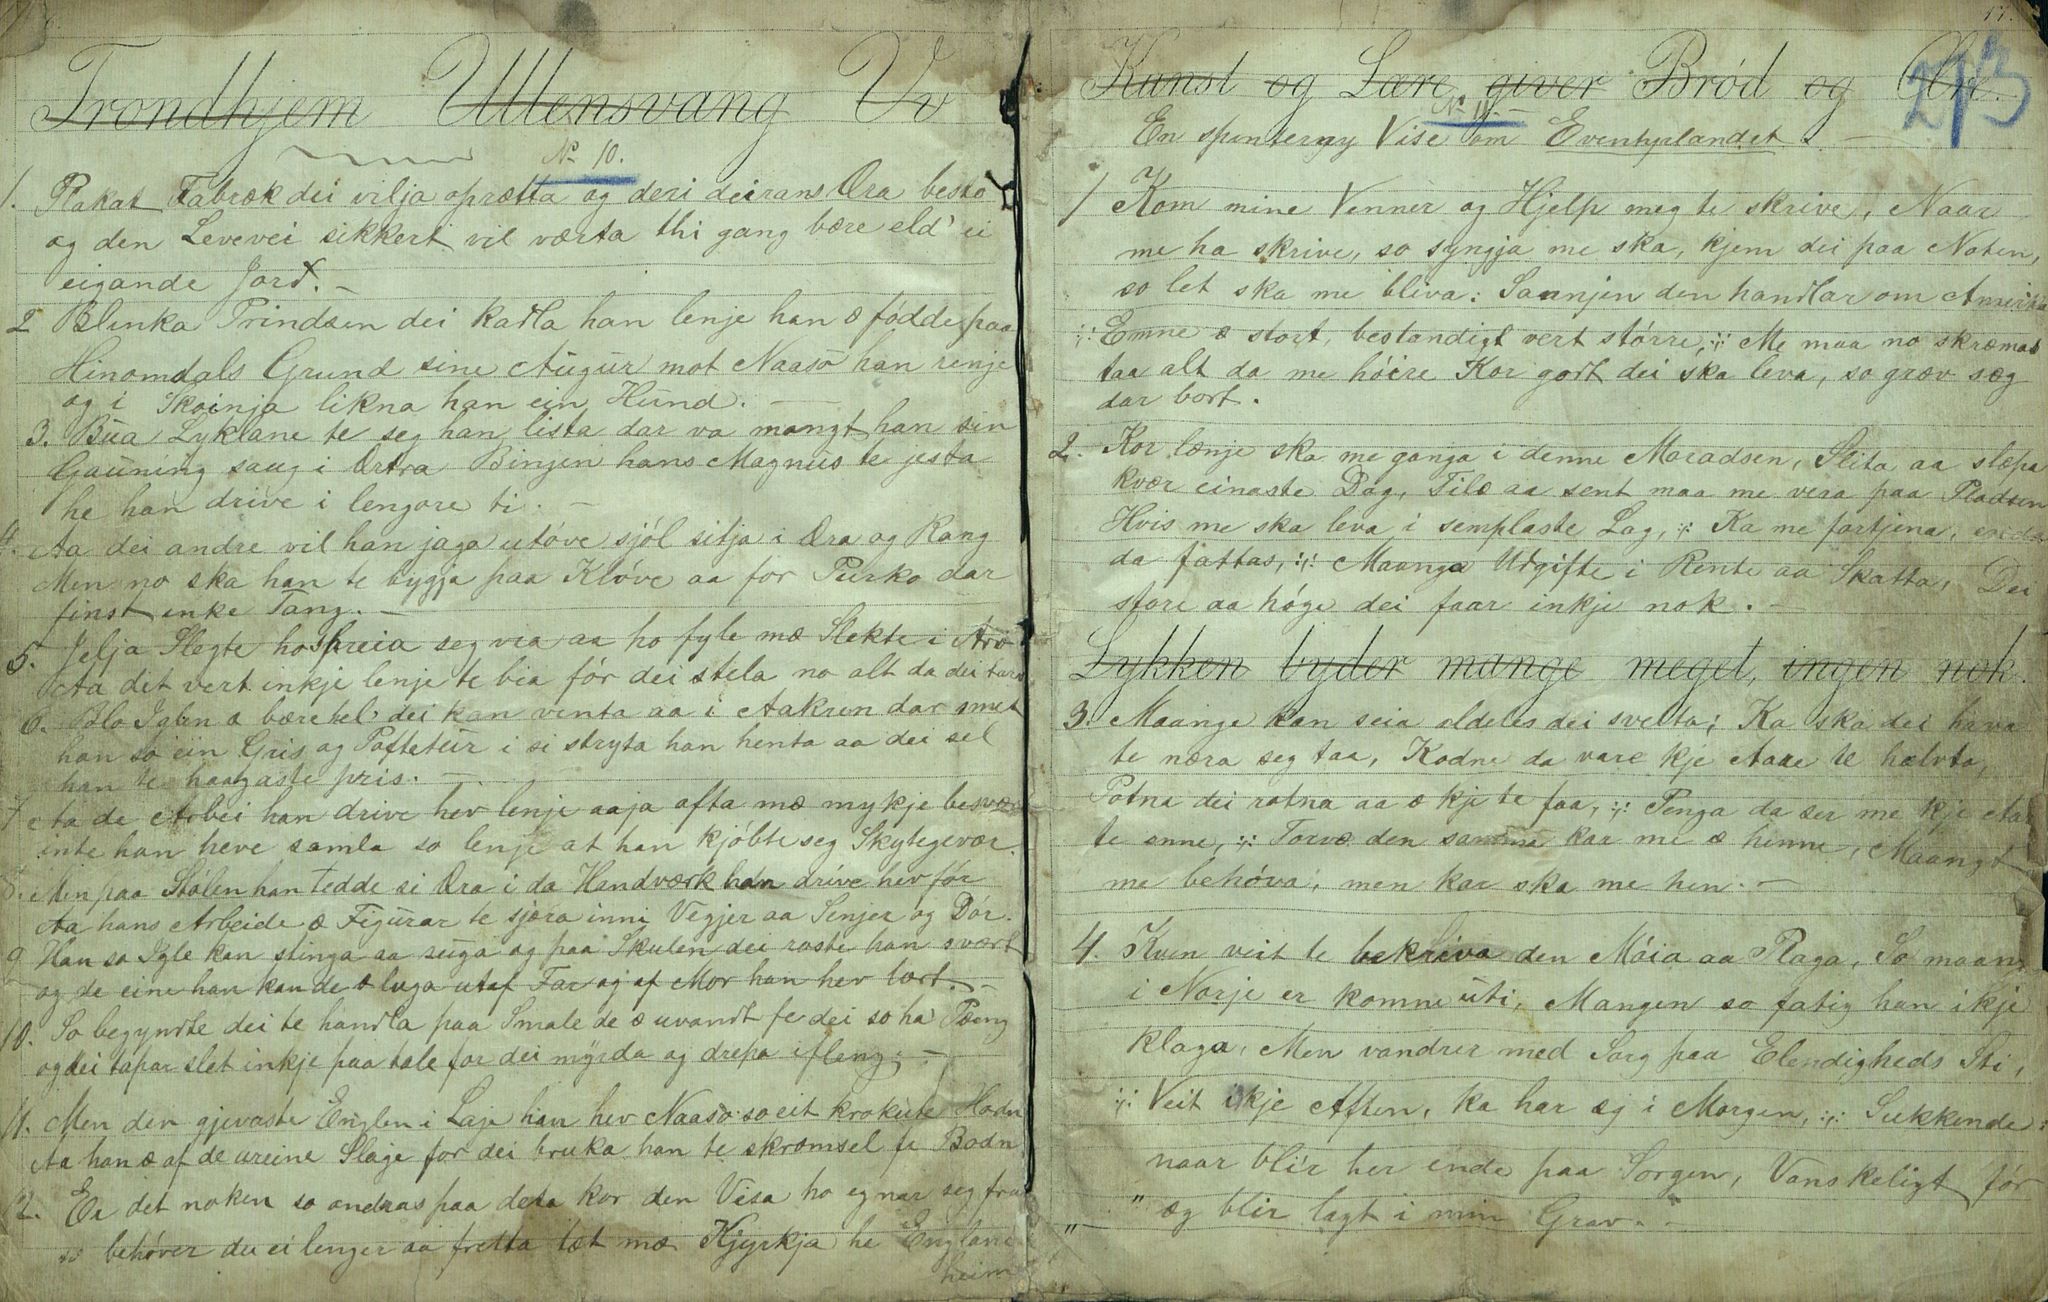 6.
Trondhjem Ullensvang Vv
No 10.
1. Plakat Fabræk dei vilja oprætta og deri deirans Æra besto
og den Levevei sikkert vil værta thi gang bære eld' ei
eigande Jord. –
2 Blenka Prindsen dei kadla han lenje han æ fødde paa
Hinomdals Grund sine Augur mot Naaso han renje
og i Skoinja likna han ein Hund. –
3. Bua Lyklane te seg han lista dar va mangt han sin
Gauning saug i Ørtra Bingen hans Magnus te jesta
he han drive i lengore ti. –
4. Aa dei andre vil han jaga utøve sjøl sitja i Æra og Rang
Men no ska han te bygja paa Kløve aa for Purko dar
finst inke Tang. –
5. Jelja Slegte ho spreia seg vea aa ho fyle mæ Slekte i Arv
Aa det vert inkje lenje te bia før dei stela no alt da dei tarv
6. Blo Iglen æ bære tel' dei kan venta aa i Aakren dar smet
han so ein Gris og Poftetur i si stryta han henta aa dei sel
han te haagaste pris. –
7 Aa de Arbei han drive hev lenje aaja ofta mæ mykje besvær
inte han heve samla so lenje at han kjøbte seg Skytegevær.
8. Men paa Stølen han tedde si Æra i da Handværk han drive hev før
Aa hans Arbeide æ Figurar te sjæra inni Vegjer aa Senjer og Dør.
9 Han so Igle kan stinga aa suga og paa Skulen dei roste han svært
og de eine han kan de æ luga utaf Far og af Mor han hev lært. –
10. So begyndte dei te handla paa Smale de æ uvandt fe dei so ha Pæng
og dei tapar slet inkje paa tale for dei myrda og drepa i fleng. –
11. Men den gjevaste Englen i Laje han hev Naaso so eit krokute Hodn
Aa han æ af de ureine Slage for dei bruka han te skræmsel fe Bodn
12. Er det noken so andras paa deta kor den Visa ho egnar seg fra
so behøver du ei lenger aa fretta tæt mæ Kjyrkja he Englane
heim
17.
273
Kunst og Lære giver Brød og Ære.
No 11.
En spinterny Vise om Eventyrlandet. –
1 Kom mine Venner og Hjelp meg te skrive, Naar
me ha skrive, so syngja me ska, kjem dei paa Noten,
so let ska me bliva: Sannjen den handlar om Amerika
:,: Emne æ stort, bestandigt vert større, :,: Me maa no skræmas
taa alt da me høire Kor godt dei ska leva, so græv sæg
dar bort.
2. Kor lænje ska me ganga i denne Maradsen, Slita aa slæpa
kvær einaste Dag, Tile aa sent maa me vera paa Pladsen
Hvis me ska leva i semplaste Lag, :,: Ka me fortjena,
da fattas, :,: Maange Udgifte i Rente aa Skatta, Dei
store aa høge dei faar inkje nok. –
Lykken byder mange meget, ingen nok.
3. Maange kan seia aldeles dei svelta; Ka ska dei hava
te næra seg taa, Kodne da vare kje Aaae te hælvta,
Potna dei rotna aa æ kje te faa, :,: Penga da ser me kje Aa
te enne, :,: Torvæ den samma kar me æ hinne, Maangt
me behøva, men kar ska me hen. –
4. Kven veit te bekriva den Møia aa Plaga, So maang
i Norje er komne uti, Mangen so fatig han ikje
klaga, Men vandrer med Sorg paa Elendigheds Sti,
:,: Veit ikje Aften, ka har eg i Morgen, :,: Sukkende:
naar blir her ende paa Sorgen, Vanskeligt før
" " æg blir lagt i min Grav. –